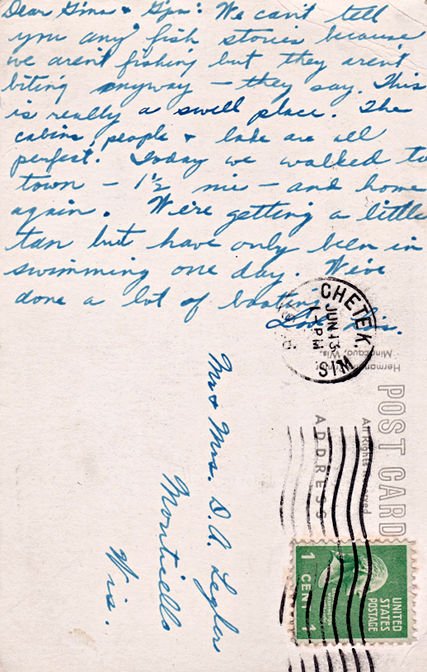 Dear Gina & Gya: We can't tell
you any fish stories because
we aren't fishing but they aren't
biting anyway – they say. This
is really a swell place. The
cabins, people & lake are all
perfect. Today we walked to
town – 1½ mi – and home
again. We're getting a little
tan but have only been in
swimming one day. We've
done a lot of boating.
Love,
CHETEK.
JUN 13
1-PM
WIS.
Minocqua, Wis.
POST CARD
All Rights Reserved
ADDRESS
Mr & Mrs. D.A. Legler
Monticello
Wis.
UNITED
STATES
POSTAGE
1 CENT 1